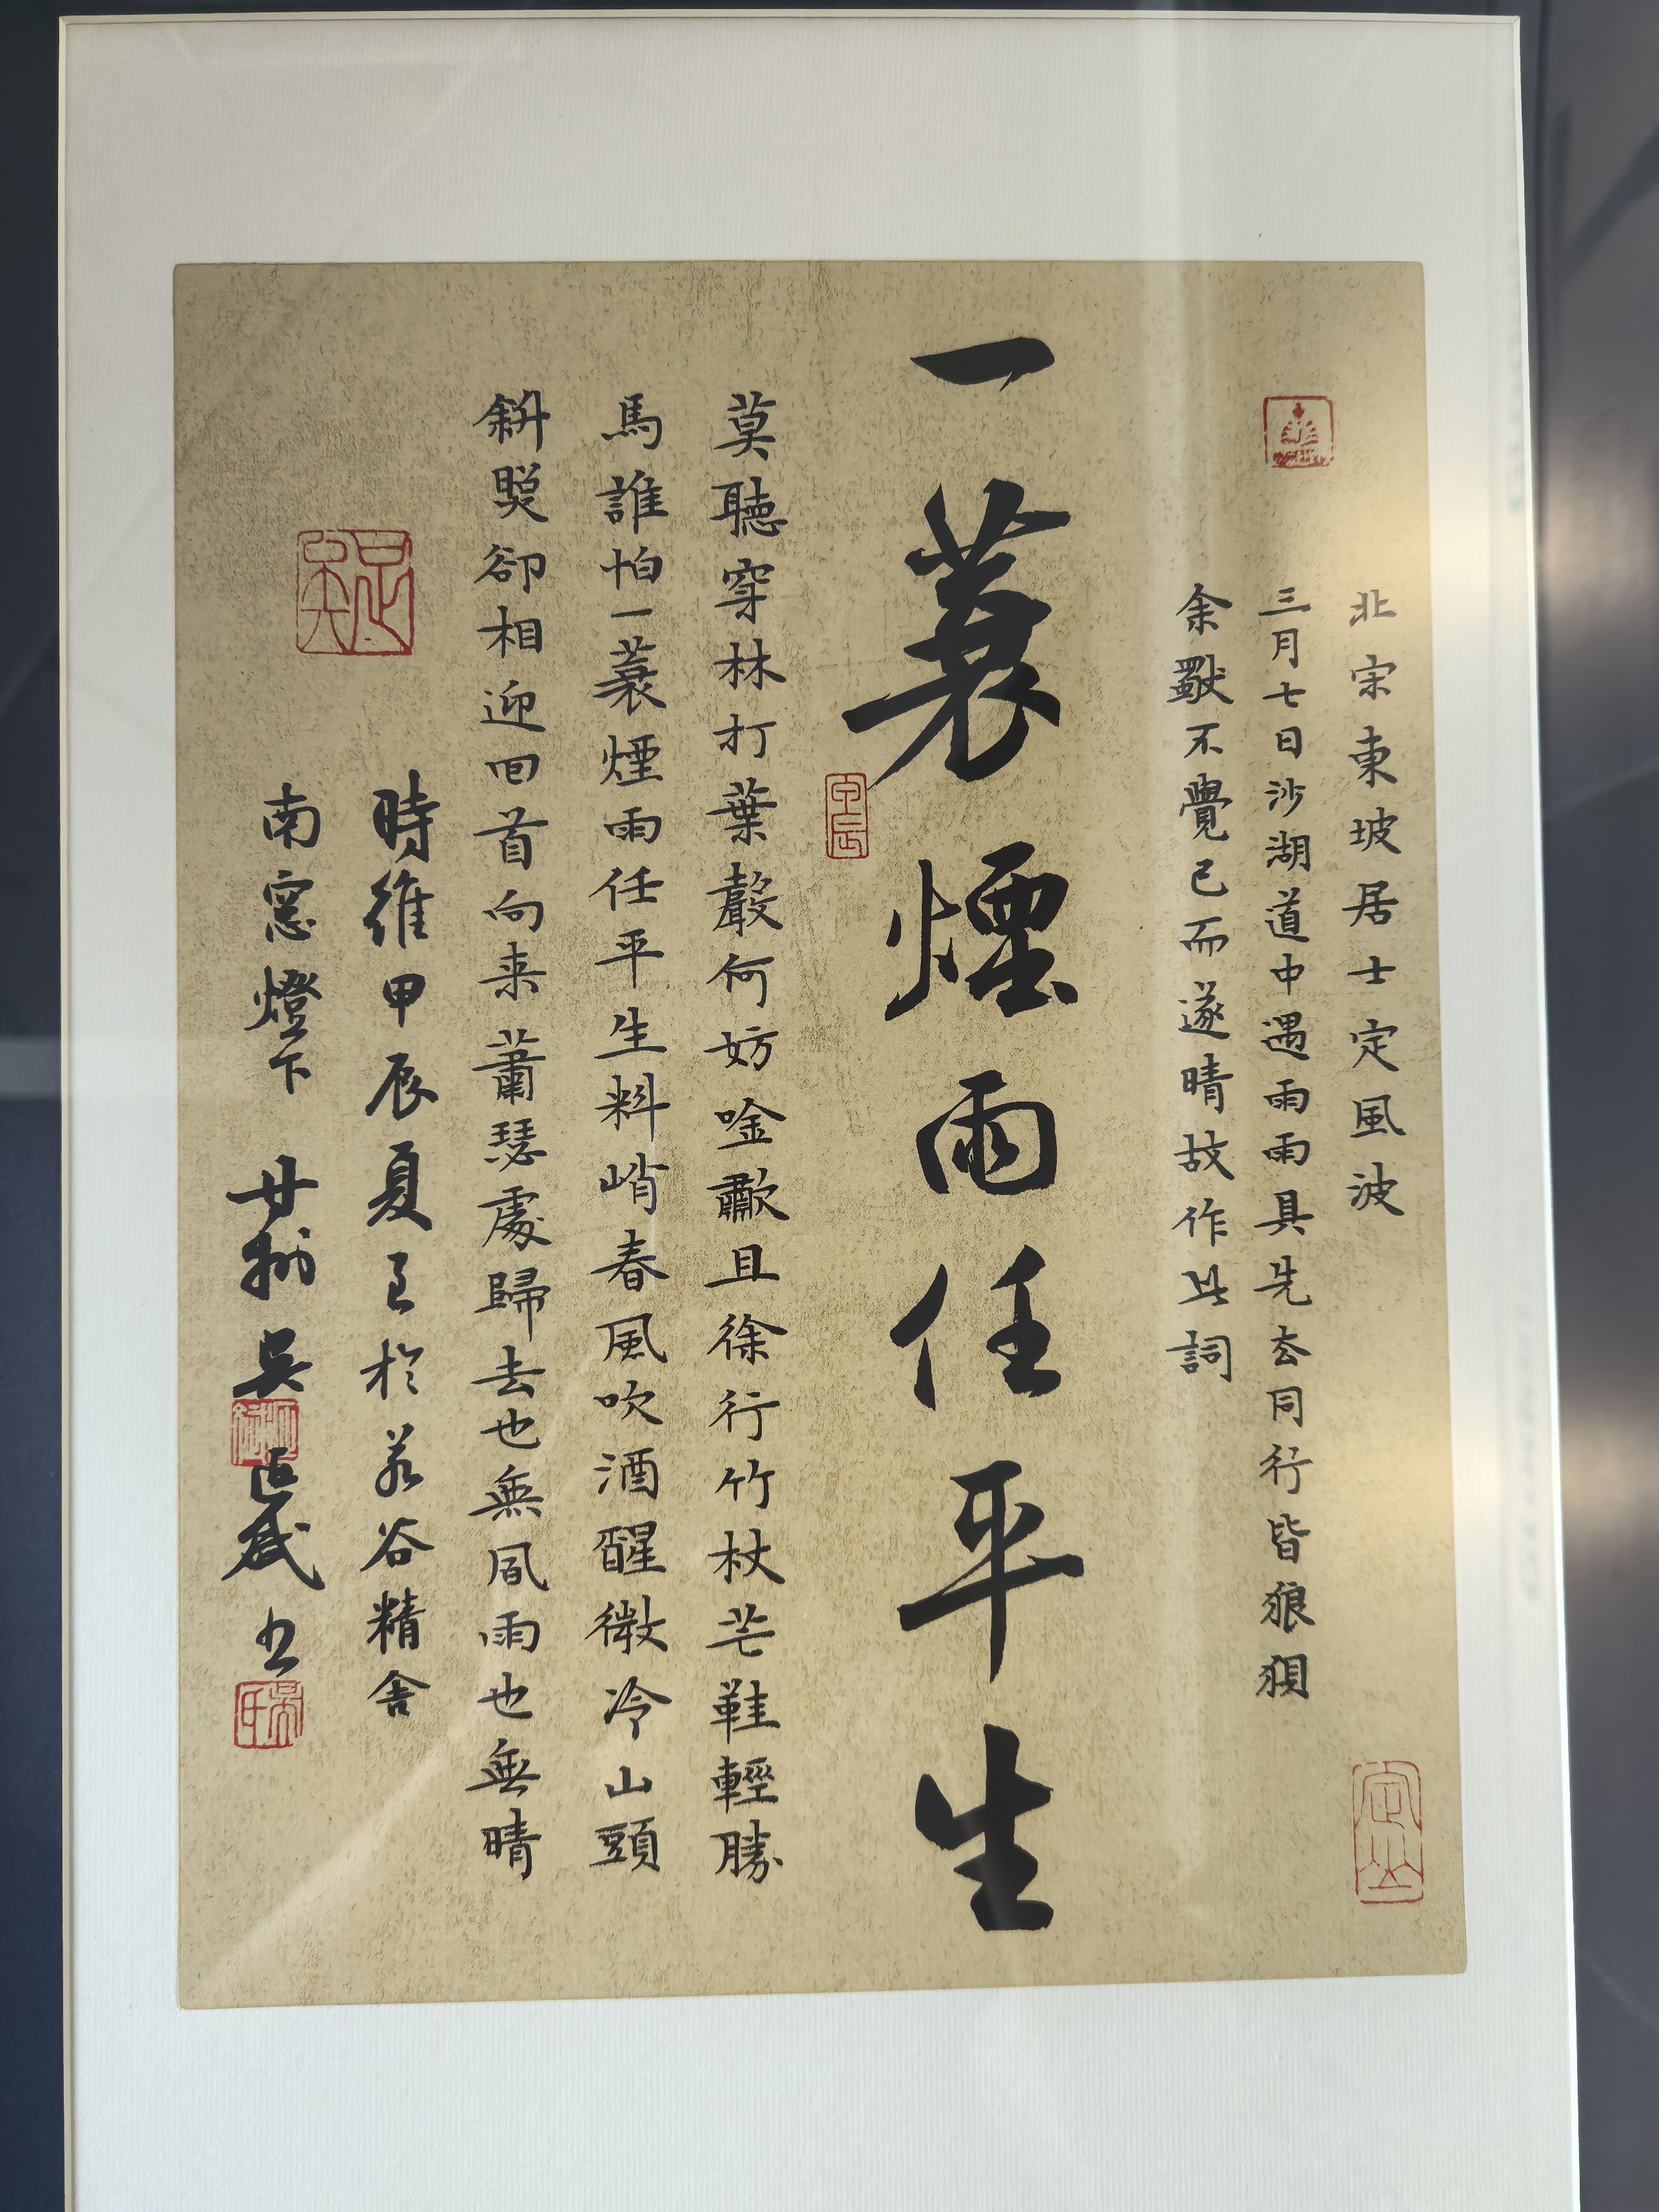 北宋東坡居士定風波
三月七日沙湖道中遇雨雨具先去同行皆狼狽
余獨不覺已而遂晴故作此詞
一蓑煙雨任平生
甲辰
莫聽穿林打葉聲何妨唫歗且徐行竹杖芒鞋輕勝
馬誰怕一蓑煙雨任平生料峭春風吹酒醒微冷山頭
斜照卻相迎回首向来蕭瑟處歸去也無風雨也無晴
時維甲辰夏日於若谷精舍
南窓燈下 廿州吳